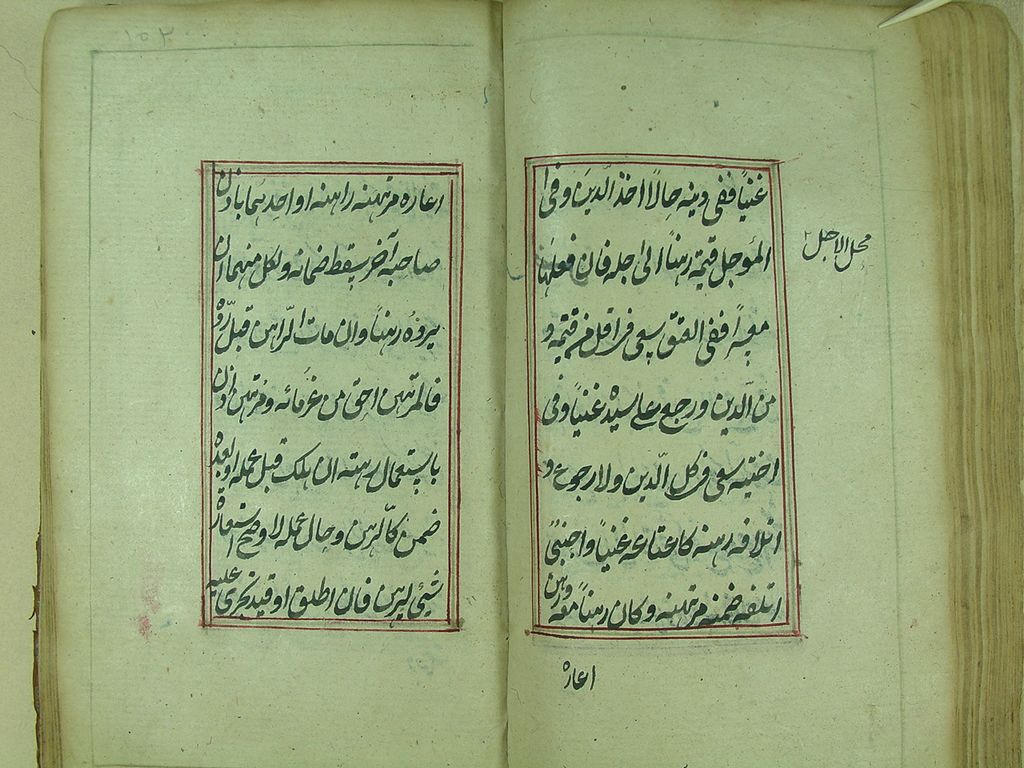 غنياً ففى دينه حالاً اخذ الدين وفى
المؤجل قيمته رهناً الى اجله فان فعلهما
محل الاجل
معسراً ففى العتق سعى فى اقل من قيمته و
من الدين ورجع على سيده غنياً وفى
اختيه سعى فى كل الدين ولا رجوع و
اتلافه رهنه كاعتاقه غنياً واجنبىٌّ
اتلفه ضمنه مرتهنه وكان رهناً معه ورهن
اعاره
١٥٢
اعاره مرتهنه راهنه او احدهما باذن
صاحبه آخر يسقط ضمانه ولكل منهما ان
يرده رهناً وان مات الراهن قبل رده
فالمرتهن احق من غرمائه ومرتهن اذن
باستعمال رهنه ان هلك قبل عمله او بعده
ضمن كالرهن وحال عمله لا وصح استعارة
شىء ليرهن فان اطلق او قيد تجرى عليه